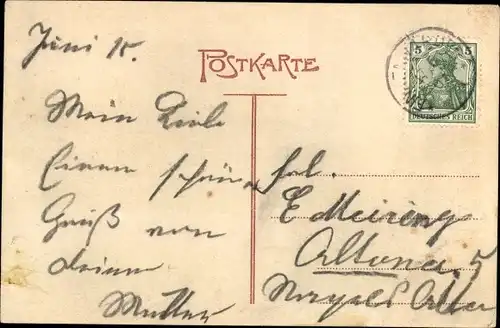 Juni 15.
POSTKARTE
5 5
DEUTSCHES REICH
Mein Liebe
Einen schönen
Gruß von
deiner
Mutter
Frl.
E Meiring
Altona, 5